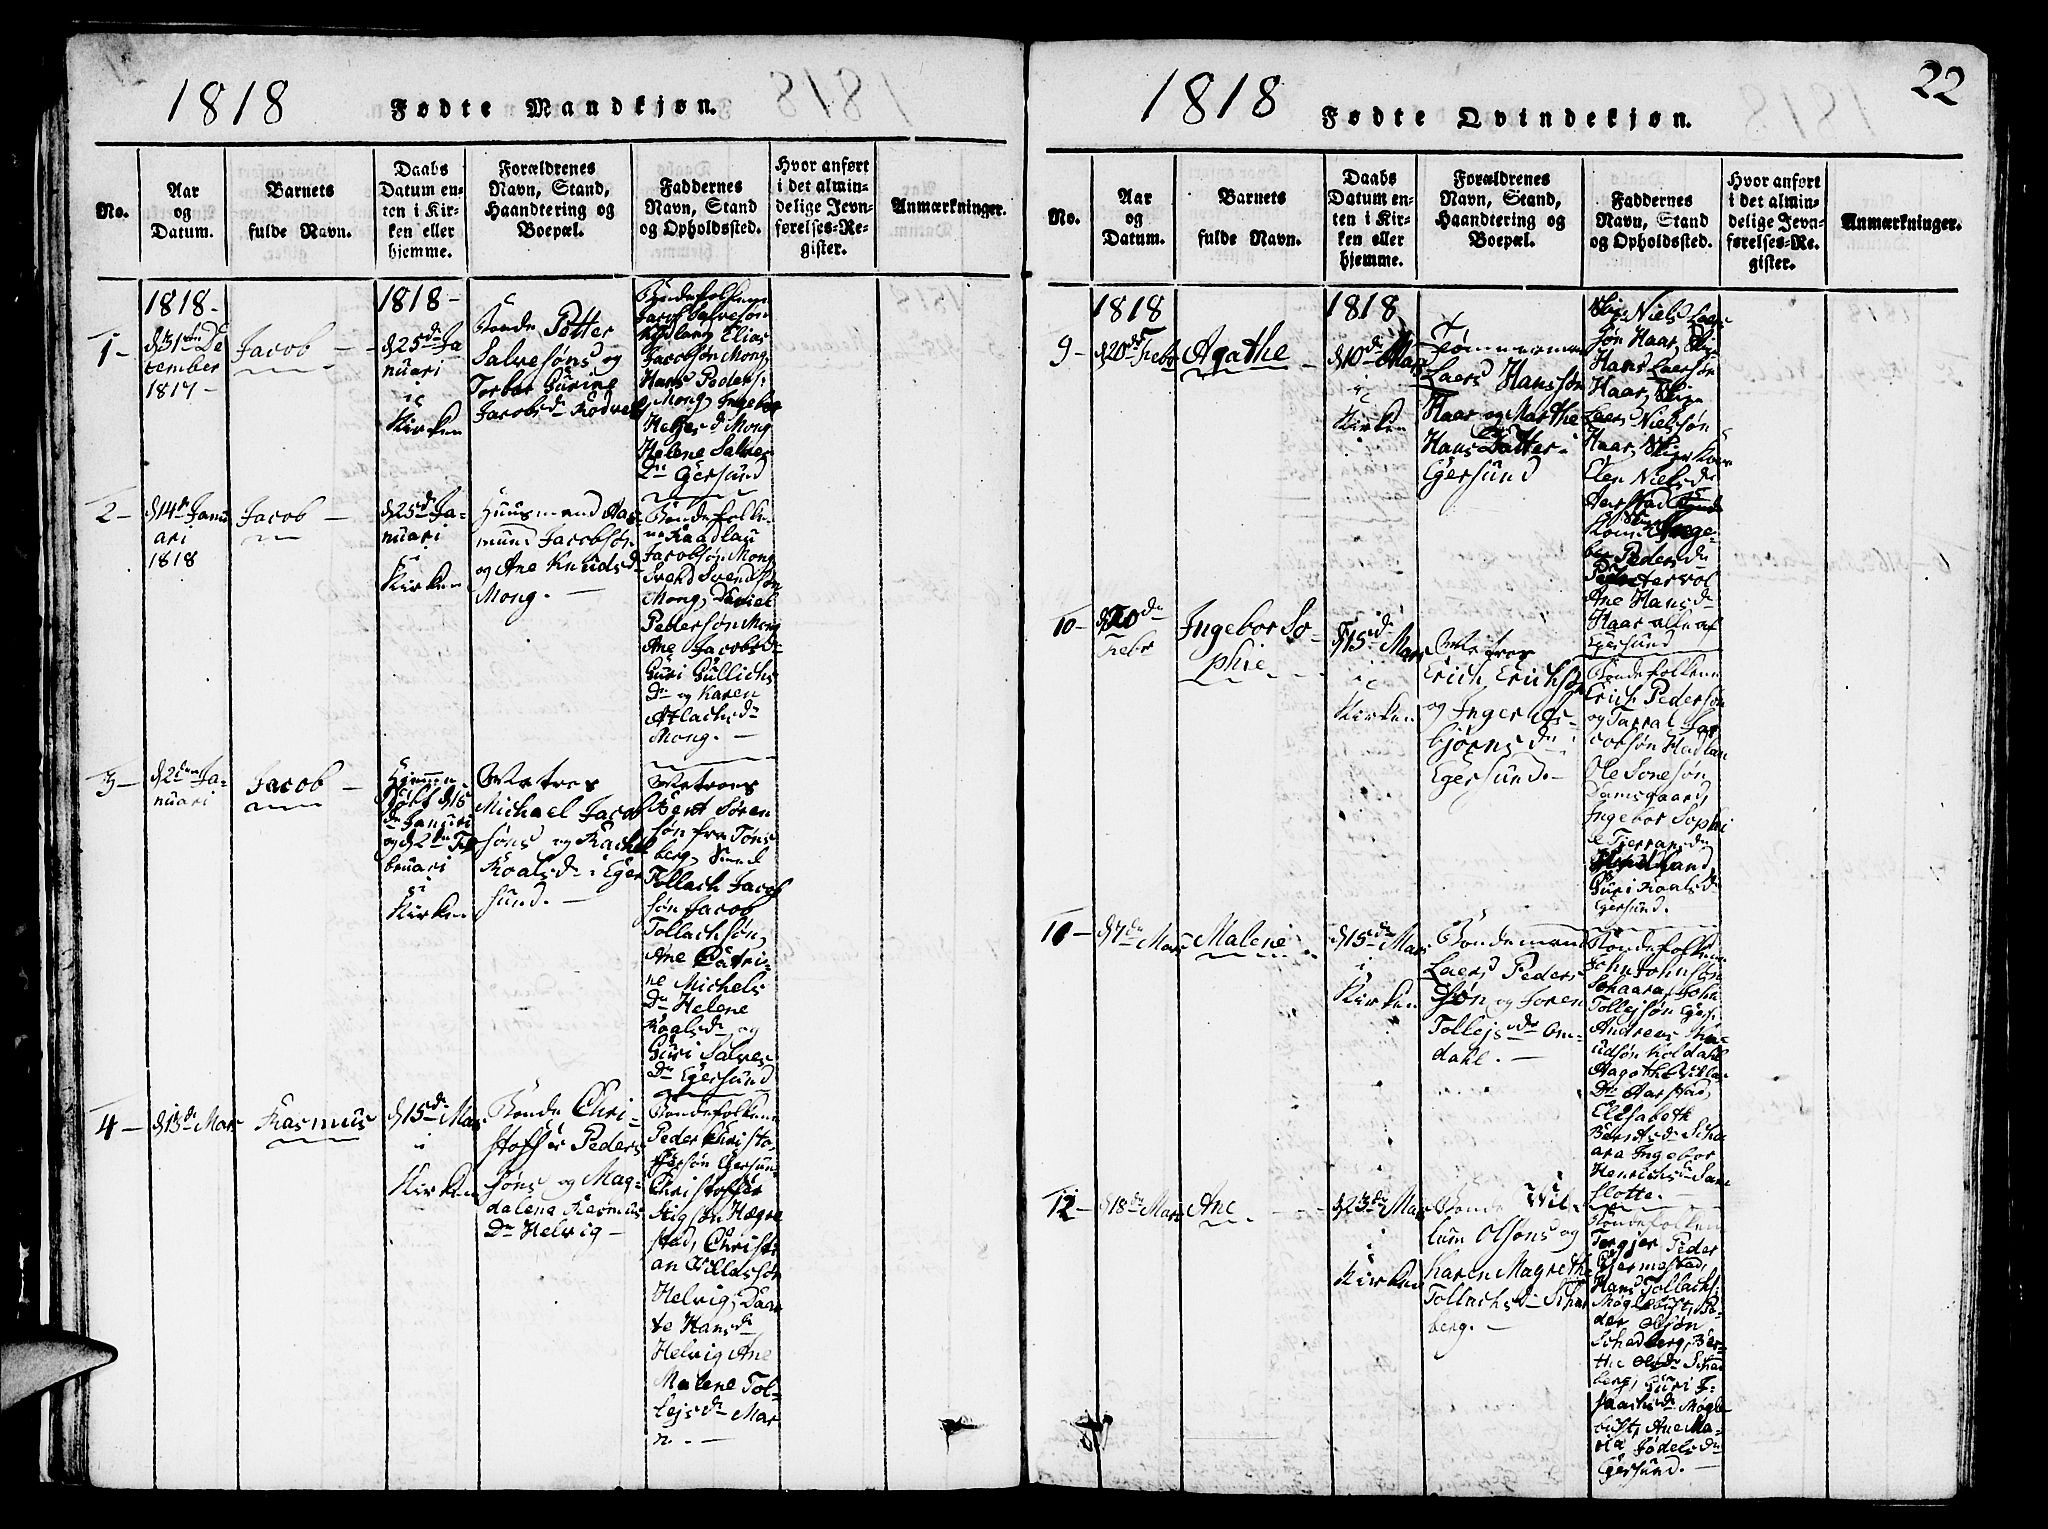 1818 Fødte Mandkjøn.
No.
Aar
og
Datum.
Barnets
fulde Navn.
Daabs
Datum en-
ten i Kir-
ken eller
hjemme.
Forældrenes
Navn, Stand,
Haandtering og
Boepæl.
Faddernes
Navn, Stand
og Opholdssted.
Hvor anført
i det almin-
delige Jevn-
førelses-Re-
gister.
Anmærkninger.
1818-
1-
d 31te De
cember
1817-
Jacob
1818-
d 25de Ja
nuari
i
Kirken
Bonde Petter
Salvesøns og
Torbor Gurine
Jacobsdr Rodvel
Bondefolkene
Jacob Salvesøn
Elias
Jacobsøn Mong,
Hans Peders:
Mong, Ingebor
Heljesd Mong
Helene Salves
Dr Egersund
2-
d 14de Janu
ari
1818
Jacob
d 25de Ja-
nuari
i
Kirken
Huusmand Aas-
mund Jacobsøn
og Ane Knudsdr
Mong.-
Bondefolke-
ne Raadlau
Jacobsøn Mong
Svend Svendsøn
Mong, Daniel
Pettersøn Mong
Ane Jacobsdr
Guri Gullichs
Dr og Karen
Atlachsdr
Mong.-
3-
d 2den Ja-
nuari
Jacob
Hjemme
døbt d 15
de Januari
og d 2de Fe
bruari
i
Kirken
Matros
Michael Jacob
søns og Rachel
Roalsdr i Eger
sund.-
Matroes
Bent Søren
søn fra Tøns
berg,
Tollach Jacob
søn Jacob
Tollachsøn,
Ane Catri-
ne Michels
Dr Helene
Roalsdr og
Guri Salves
Dr Egersund
4-
d 13de Mars
Rasmus
d 15de Mars
i
Kirken
Bonde Chri-
stoffer Peders
søns og Mag-
dalena Rasmus
Dr Helvig-
Bondefolkene
Peder Christo-
fersøn Egersund
Christoffer
Stigsøn Hægre
stad, Christi
an Villadsøn
Helvig, Daar
te Hansdr
Helvig Ane
Malene Tol-
lejsdr Mar
n.-
1818 Fødte Qvindekjøn.
22
No.
Aar
og
Datum.
Barnets
fulde Navn.
Daabs
Datum en-
ten i Kir-
ken eller
hjemme.
Forældrenes
Navn, Stand,
Haandtering og
Boepæl.
Faddernes
Navn, Stand
og Opholdssted.
Hvor anført
i det almin-
delige Jevn-
førelses-Re-
gister.
Anmærkninger.
1818
9-
d 20de Febr
Agathe
1818
d 10de Mars
i
Kirken
Tømmermand
Laers Hanssøn
Haar og Marthe
Hans Datter i
Egersund
Niels Laer-
søn Haar,
Hans Laersøn
Haar,
Laers Nielsøn
Haar,
Elen Nielsdr
Aarstad
Kone Inge-
bor Pedersdr
Ane Hansdr
Haar alle af
Egersund
10-
d 20de
Febr
Ingebor So-
phie
d 15de Mars
i
Kirken
Matros
Erich Erichsøn
og Inger Es-
bjørnsdr i
Egersund.-
Bondefolkene
Erich Pedersøn
og Tarral Ja-
cobsøn Hadlan
Ole Sonesøn
Damsgaard,
Ingebor Sophi
e Tjerransdr
Guri Roalsdr
Egersund.
11-
d 7de Mars
Malene
d 15de Mars
i
Kirken
Bondemand
Laers Peders
søn og Joren
Tollejsdr Om-
dahl.-
Bondefolkene
John Johnsøn
Schaara, John
Tollejsøn Egers:
Andreas Kn-
udsøn Koldahl
Aagothe Villa
Dr Aarstad,
Elisabeth
Berntsdr Scha
ara Ingebor
Henrichsdr San
flotte.-
12-
d 18de Mars
Ane
d 23de Mars
i
Kirken
Bonde Vil-
lum Olsøns og
Karen Magrethe
Tollachsdr Scha
berg.-
Bondefolkene
Torgjer Peder
Gjermestad,
Hans Tollachs:
Møglebust, Pe-
der Olsøn
Schadberg, Ber-
the Olsdr Scha
berg, Guri I-
saachsdr Møgle
bust, Ane Ma-
ria Jødelsdr
Egersund.-